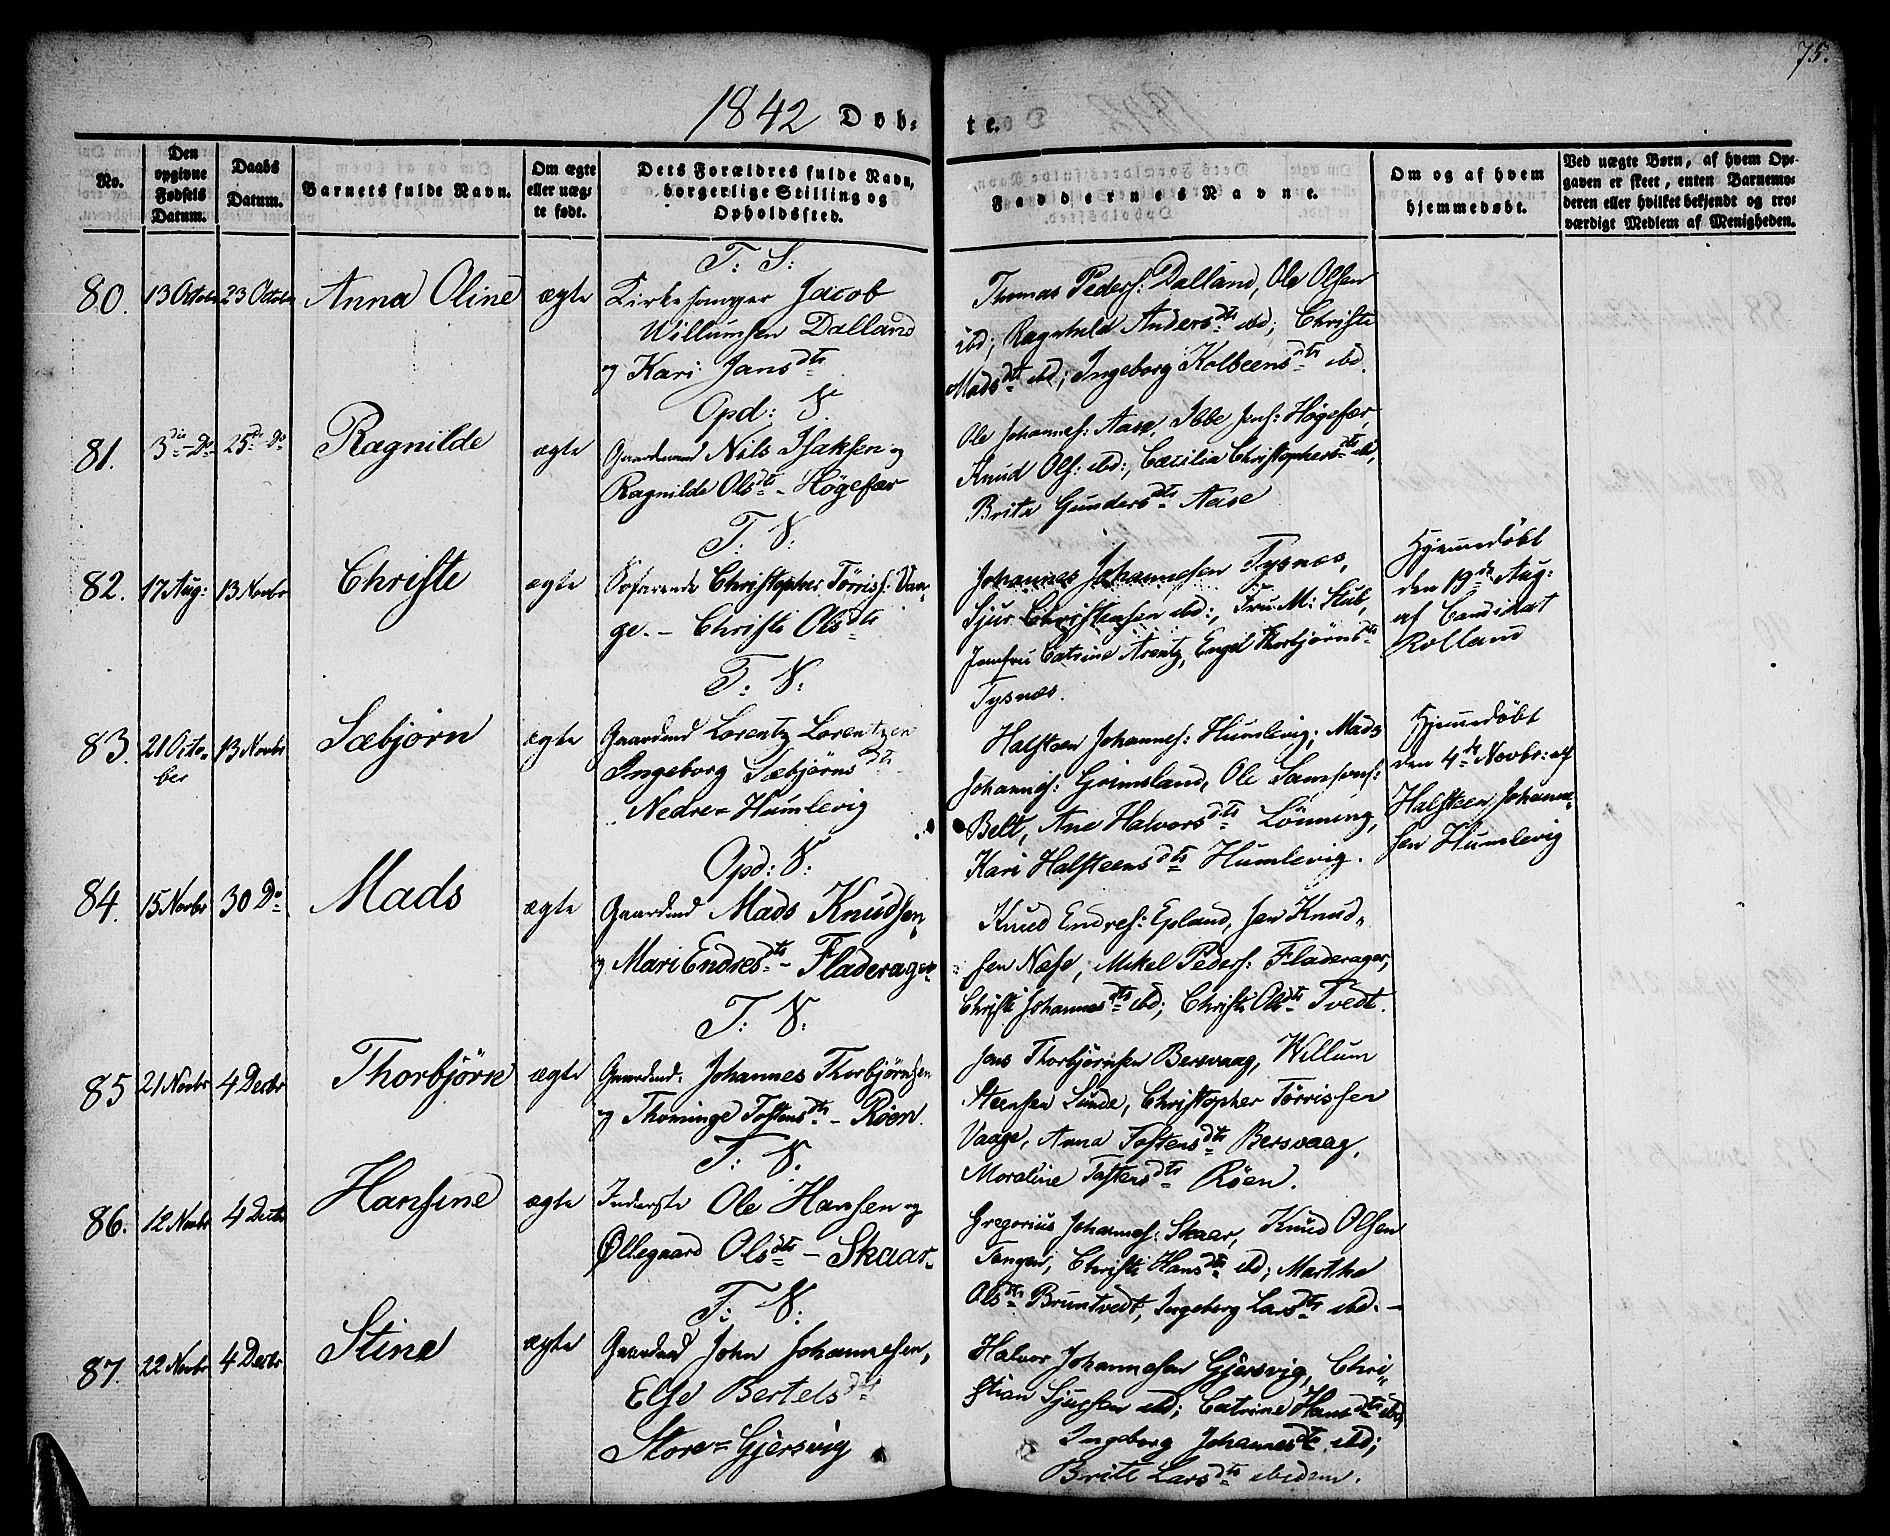 75.
1842 Døb-
te.
No.
Den
opgivne
Fødsels
Datum.
Daabs
Datum.
Barnets fulde Navn.
Om ægte
eller uæg-
te født.
Dets Forældres fulde Navn,
borgerlige Stilling og
Opholdssted.
Faddernes Navne.
Om og af hvem
hjemmedøbt.
Ved uægte Børn, af hvem Op-
gaven er skeet, enten Barnemo-
deren eller hvilket bekjendt og tro-
værdigt Medlem af Menigheden.
T: S:
80. 13 Octob 23 Octob Anna Oline ægte
Kirkesanger Jacob
Willumsen Dalland
og Kari Jansdtr
Thomas Peders: Dalland, Ole Olsen
ibd; Ragnhild Andersdtr ibd; Christi
Madsdtr ibd; Ingeborg Kolbeensdtr ibd.
Opd: V.
81. 3die Do 25de Do Ragnilde ægte
Gaardmand Nils Isaksen og
Ragnilde Olsdtr - Høgefær
Ole Johannes: Aase, Ibbe Jens: Høgefær,
Knud Ols: ibd:, Cæcilia Christophersdtr ibd,
Brita Gundersdtr Aase
T: V:
82. 17 Aug: 13 Novbr Christe ægte
Søfarende Christopher Tørriss: Vaa-
ge. - Christi Olsdtr
Johannes Johannesen Tysnæs,
Sjur Christensen ibd:, Fru M: Stub,
Jomfru Catrine Arentz, Engel Thorbjørnsdtr
Tysnæs.
Hjemmedøbt
den 19de Aug:
af Candidat
Rolland
T: V:
83. 21 Octo-
ber
13 Novbr Sæbjørn ægte
Gaardmd Lorentz Lorentzen
Ingeborg Sæbjørnsdtr
Nedre-Humlevig
Halsteen Johannes: Humlevig, Mads
Johannes: Grimsland, Ole Samsons:
Belt, Ane Halvorsdtr Lønning,
Kari Halsteensdtr Humlevig.
Hjemmedøbt
den 4de Novbr: af
Halsteen Johanne-
sen Humlevig
Opd: V:
84. 15 Novbr 30 Do Mads ægte
Gaardmd Mads Knudsen
og Mari Endresdtr - Fladerager
Knud Endres: Epland, Jan Knud-
sen Næse, Mikel Peders: Fladerager,
Christi Johannesdtr ibd; Christi Olsdtr Tvedt.
T: V:
85 21 Novbr 4 Decbr Thorbjørn ægte
Gaardmd: Johannes Thorbjørnsen
og Thorninge Tostensdtr - Røen.
Jens Thorbjørnsen Bersvaag, Willum
Steensen Lunde, Christopher Tørrissen
Vaage, Anna Tostensdtr Bersvaag,
Moraline Tostensdtr Røen.
T: V.
86. 12 Novbr 4 Decbr Hansine ægte
Inderste Ole Hansen og
Øllegaard Olsdtr - Skaar
Gregorius Johannes: Skaar, Knud Olsen
Tangen, Christi Hansdtr ibd; Martha
Olsdtr Bruntvedt, Ingeborg Larsdtr ibd. -
T: V:
87. 22 Novbr 4 Decbr Stine ægte
Gaardmd John Johannesen,
Else Bertelsdtr
Store-Gjersvig
Halvor Johannesen Gjersvig, Chri-
stian Sjursen ibd; Catrine Hansdtr ibd;
Ingeborg Johannesdtr ibd;
Brite Larsdtr ibidem.